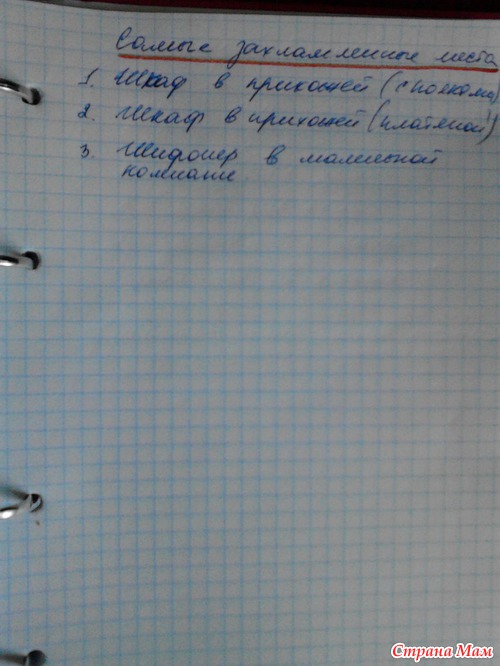 Самые захламленные места
1. Шкаф в прихожей (с полками)
2. Шкаф в прихожей (платяной)
3. Шифонер в маленькой
комнате
Страна Мам